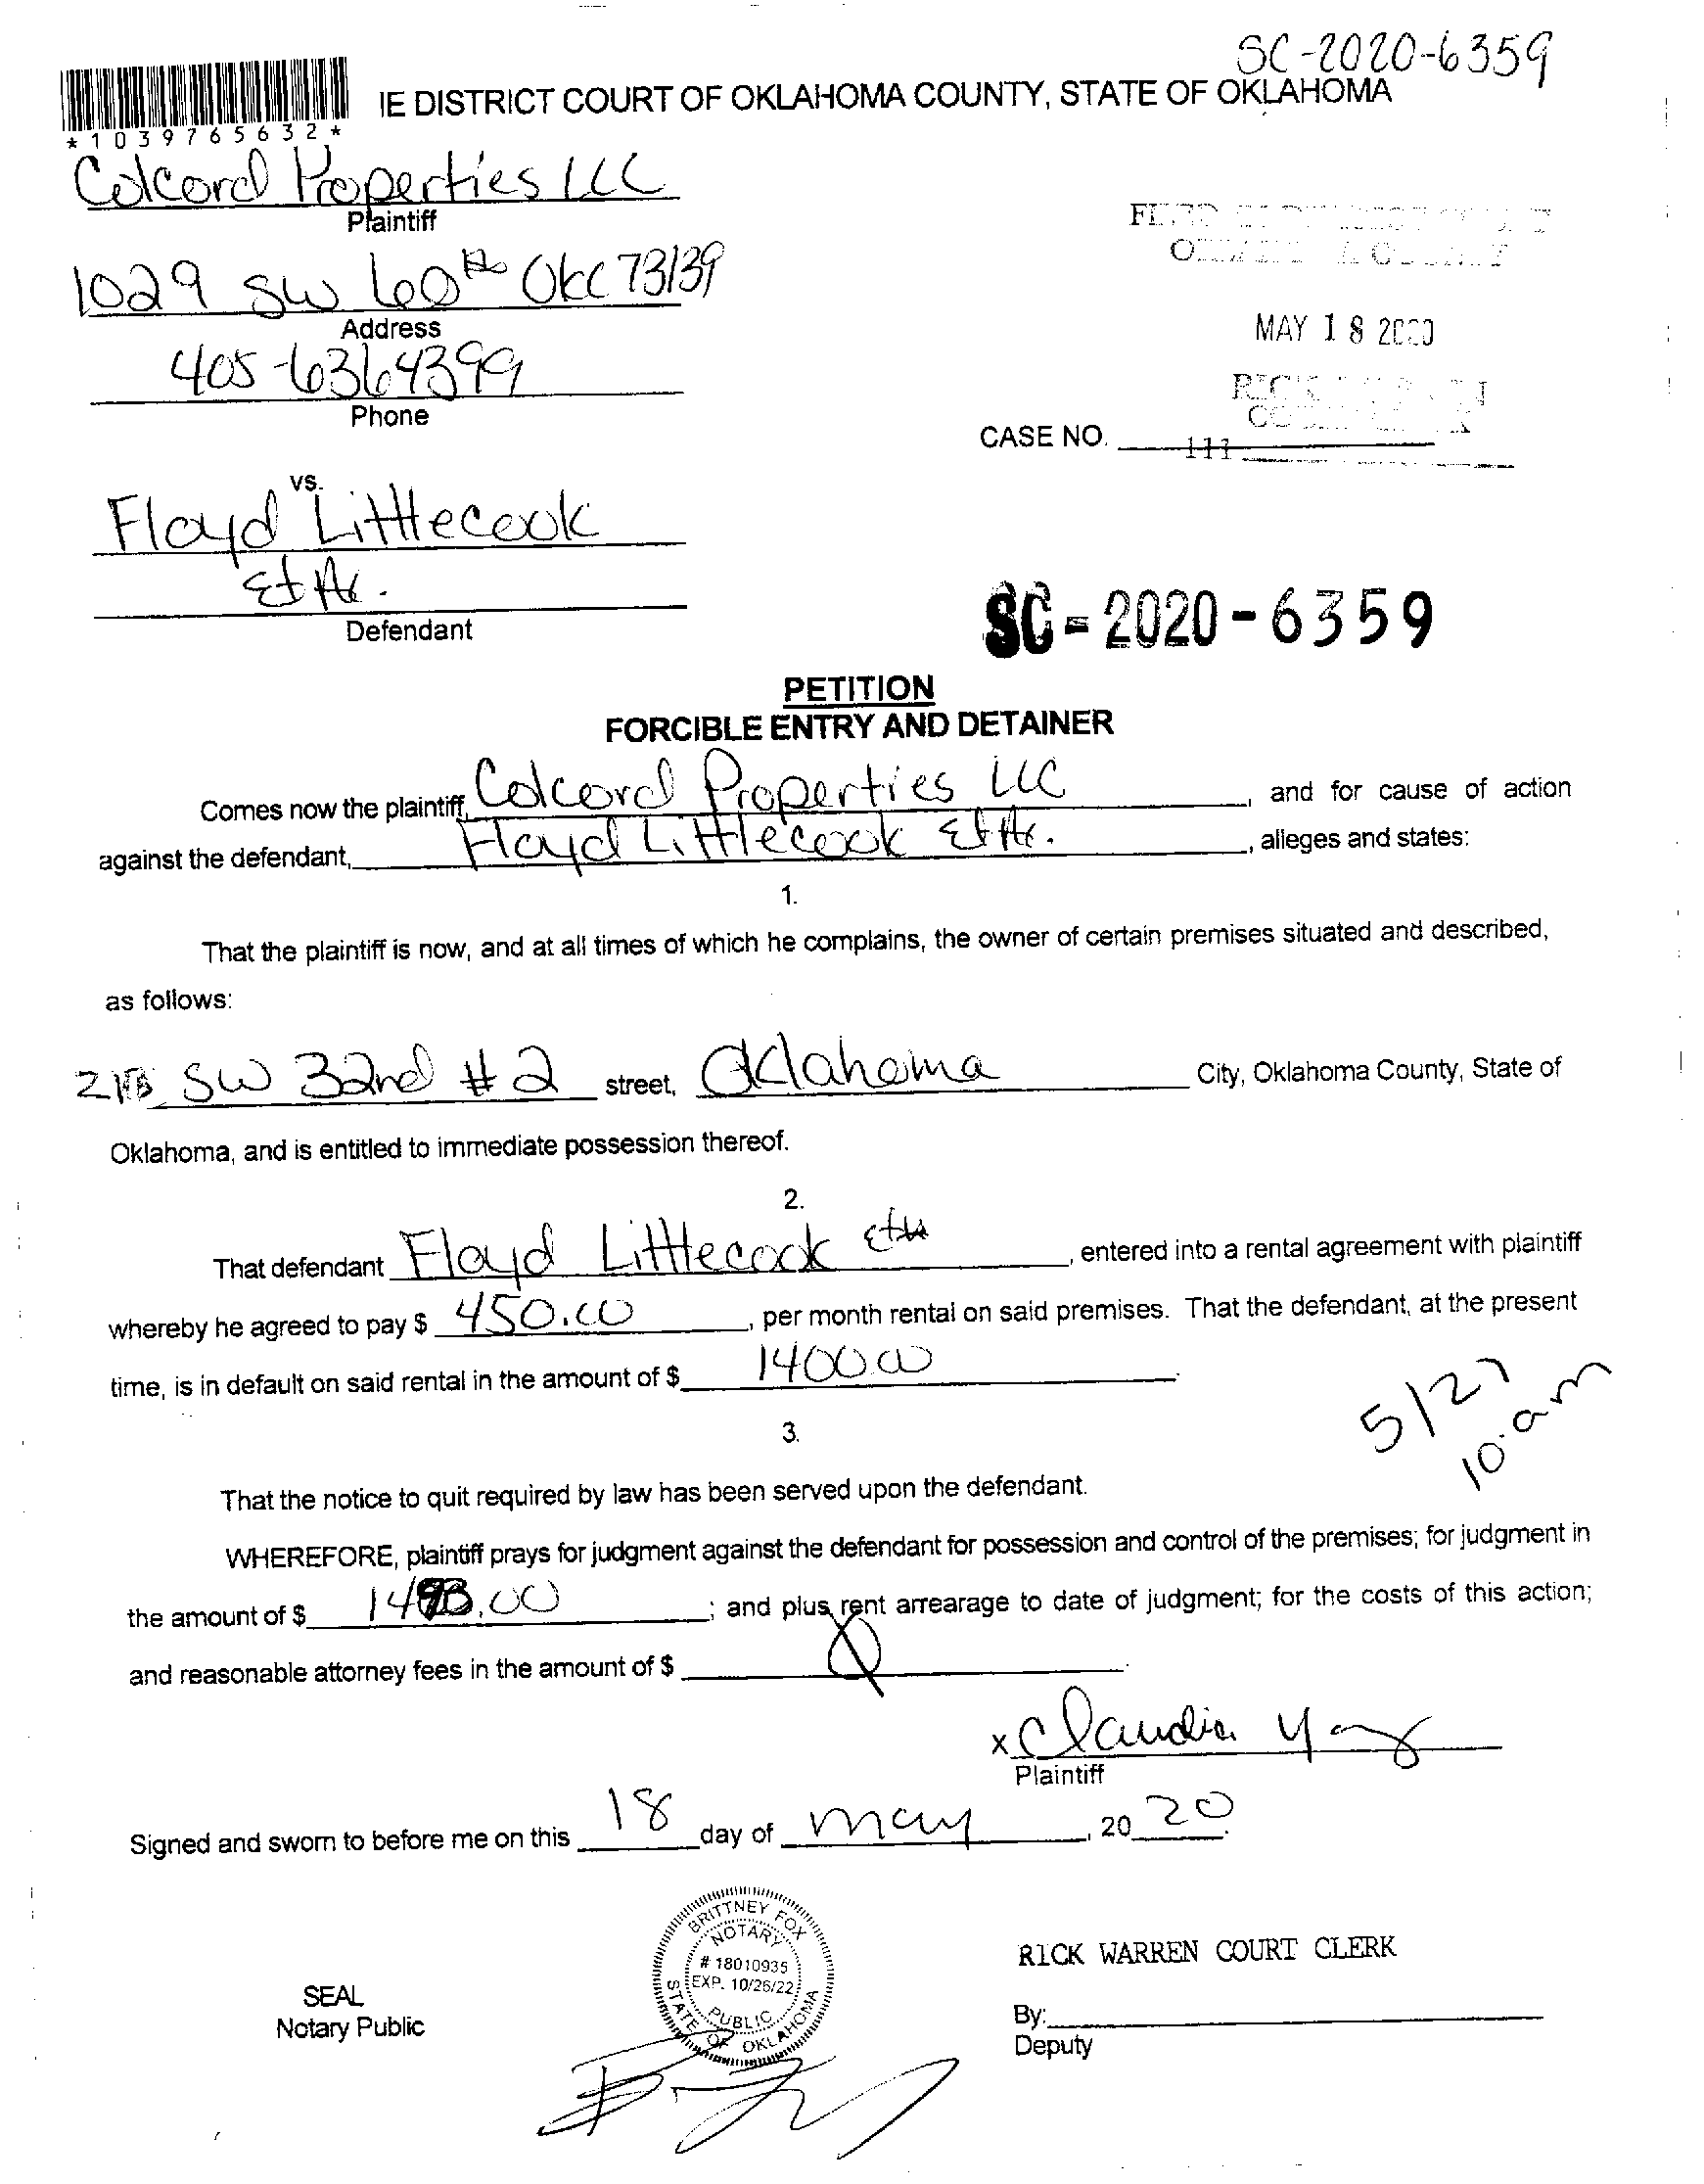 SC-2020-6359
IE DISTRICT COURT OF OKLAHOMA COUNTY, STATE OF OKLAHOMA
*1039765632*
Colcord Properties LLC
Plaintiff
1029 SW 60th Okc 73139
Address
405-6364399
Phone
MAY 18 2020
CASE NO.
vs.
Floyd Littlecook
Defendant
SC-2020-6359
PETITION
FORCIBLE ENTRY AND DETAINER
Comes now the plaintiff, Colcord Properties LLC, and for cause of action
against the defendant, Floyd Littlecook, alleges and states:
1.
That the plaintiff is now, and at all times of which he complains, the owner of certain premises situated and described,
as follows:
SW 32nd #2 street, Oklahoma City, Oklahoma County, State of
Oklahoma, and is entitled to immediate possession thereof.
2.
That defendant Floyd Littlecook, entered into a rental agreement with plaintiff
whereby he agreed to pay $ 450.00, per month rental on said premises. That the defendant, at the present
time, is in default on said rental in the amount of $ 1400.00
5/27
10:am
3.
That the notice to quit required by law has been served upon the defendant.
WHEREFORE, plaintiff prays for judgment against the defendant for possession and control of the premises; for judgment in
the amount of $ ; and plus rent arrearage to date of judgment; for the costs of this action;
and reasonable attorney fees in the amount of $
x Claudia
Plaintiff
Signed and sworn to before me on this 18 day of may, 20 20.
BRITTNEY FOX
NOTARY
# 18010935
EXP. 10/26/22
PUBLIC
STATE OF OKLAHOMA
SEAL
Notary Public
RICK WARREN COURT CLERK
By:
Deputy